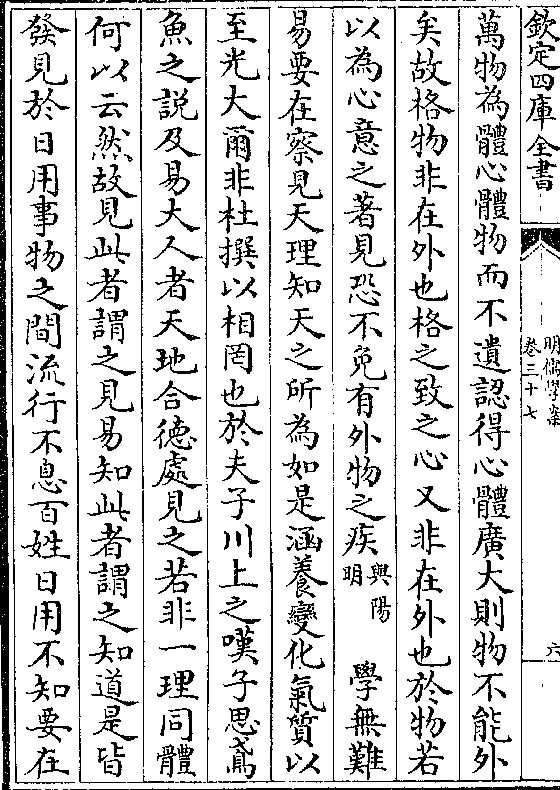 欽定四庫全書
明儒學案
卷三十七
六
萬物為體心體物而不遺認得心體廣大則物不能外
矣故格物非在外也格之致之心又非在外也於物若
以為心意之著見恐不免有外物之疾與陽明　學無難
易要在察見天理知天之所為如是涵養變化氣質以
至光大爾非杜撰以相罔也於夫子川上之嘆子思鳶
魚之説及易大人者天地合德處見之若非一理同體
何以云然故見此者謂之見易知此者謂之知道是皆
發見於日用事物之間流行不息百姓日用不知要在